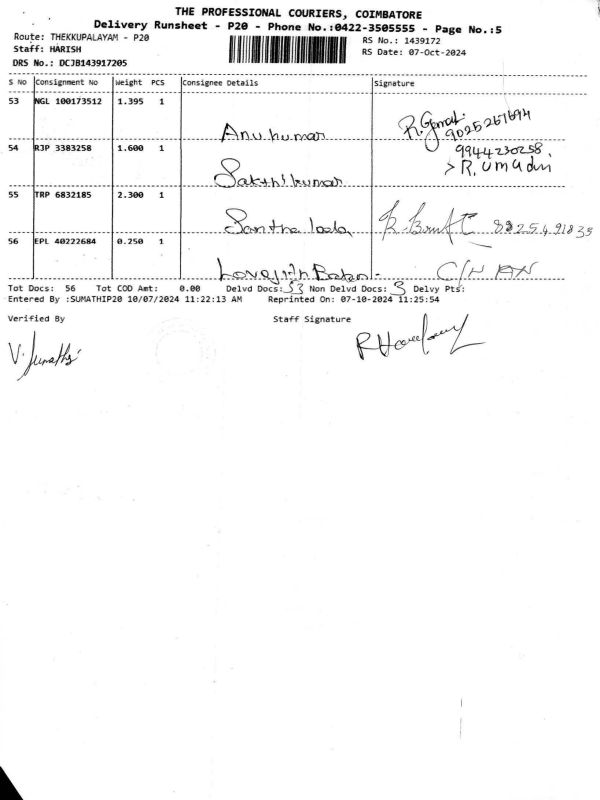 THE PROFESSIONAL COURIERS, COIMBATORE
Delivery Runsheet - P20 - Phone No.:0422-3505555 - Page No.:5
Route: THEKKUPALAYAM - P20
RS No.: 1439172
Staff: HARISH
RS Date: 07-Oct-2024
DRS No.: DCJB143917205
S No Consignment No Weight PCS Consignee Details Signature
53 NGL 100173512 1.395 1
Anukumar
9025261694
54 RJP 3383258 1.600 1
9944230258
Sakthikumar
> R. Umadevi
55 TRP 6832185 2.300 1
Santha
56 EPL 40222684 0.250 1
C/N AN
Tot Docs: 56 Tot COD Amt: 0.00 Delvd Docs: 53 Non Delvd Docs: 3 Delvy Pts:
Entered By :SUMATHIP20 10/07/2024 11:22:13 AM Reprinted On: 07-10-2024 11:25:54
Verified By Staff Signature
V. Sumathi